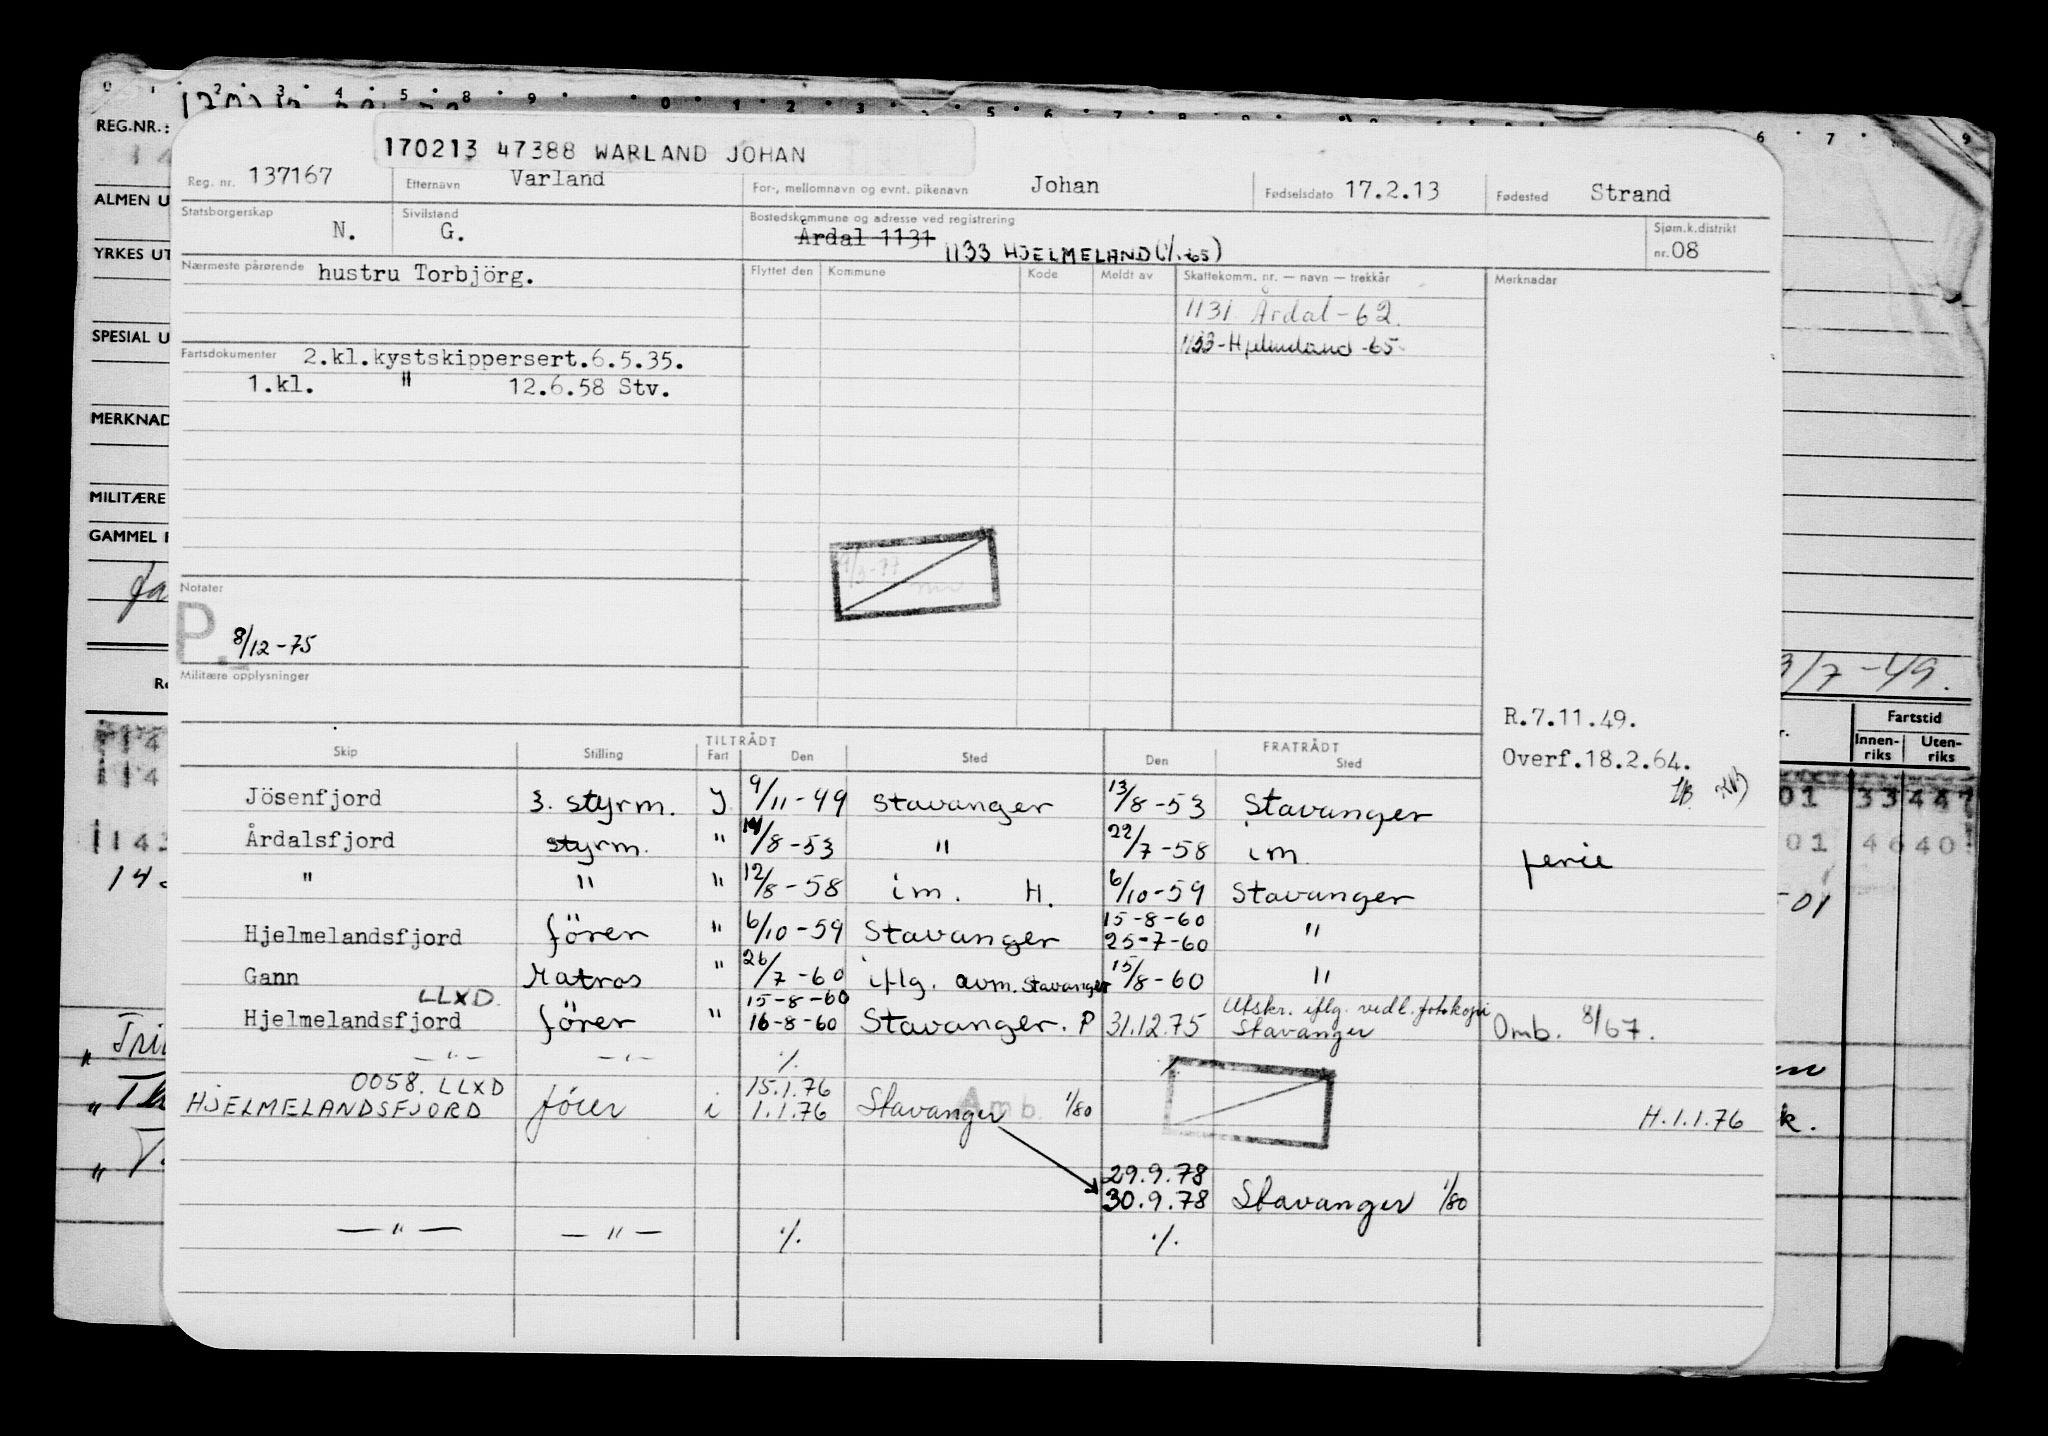 REG.NR.:
170213 47388 WARLAND JOHAN
Reg. nr. 137167 Etternavn Varland For-, mellomnavn og evnt. pikenavn Johan Fødselsdato 17.2.13 Fødested Strand
ALMEN U
Statsborgerskap N. Sivilstand G. Bostedskommune og adresse ved registrering Årdal 1131 1133 HJELMELAND (1/1-65) Sjøm.k.distrikt nr. 08
YRKES UT
Nærmeste pårørende hustru Torbjörg. Flyttet den Kommune Kode Meldt av Skattekomm. nr. — navn — trekkår Merknadar
1131 Årdal-62.
SPESIAL U
1133-Hjelmeland-65
Fartsdokumenter 2.kl.kystskippersert.6.5.35.
1.kl. " 12.6.58 Stv.
MERKNAD
MILITÆRE
GAMMEL
/3-77
Notater
P. 8/12-75
/7-49.
Militære opplysninger
R.7.11.49.
Overf.18.2.64.
Fartstid
Innen-riks Uten-riks
TILTRÅDT FRATRÅDT
Skip Stilling Fart Den Sted Den Sted
Jösenfjord 3. styrm. J 9/11-49 Stavanger 13/8-53 Stavanger
Årdalsfjord styrm. " 14/8-53 " 22/7-58 im ferie
" " " 12/8-58 im. H. 6/10-59 Stavanger
Hjelmelandsfjord förer " 6/10-59 Stavanger 15-8-60 25-7-60 "
Gann Matros " 26/7-60 iflg. avm. Stavanger 15/8-60 "
LLXD 15-8-60 Utskr. iflg. vedl. fotokopi
Hjelmelandsfjord förer " 16-8-60 Stavanger. P 31.12.75 Stavanger Omb. 8/67.
—"— —"— ./. ./.
0058. LLXD 15.1.76
HJELMELANDSFJORD förer i 1.1.76 Stavanger Amb. 1/80 H.1.1.76
29.9.78
30.9.78 Stavanger 1/80
—"— —"— ./. ./.